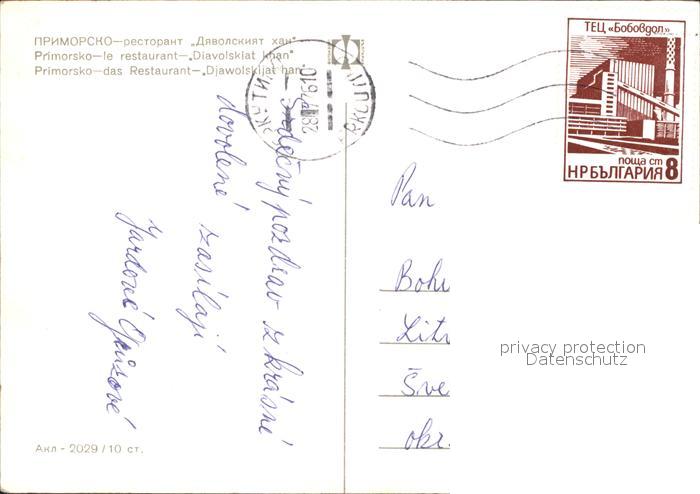 ПРИМОРСКО—ресторант „Дяволският хан“
Primorsko—le restaurant—„Diavolskiat khan“
Primorsko—das Restaurant—„Djawolskijat han“
ТЕЦ «Бобовдол»
поща ст
НР БЪЛГАРИЯ 8
Srdečný pozdrav z krásné
dovolené zasílají
Pan
Bohu
Lit
Šve
okr.
privacy protection
Datenschutz
Акл - 2029/10 ст.